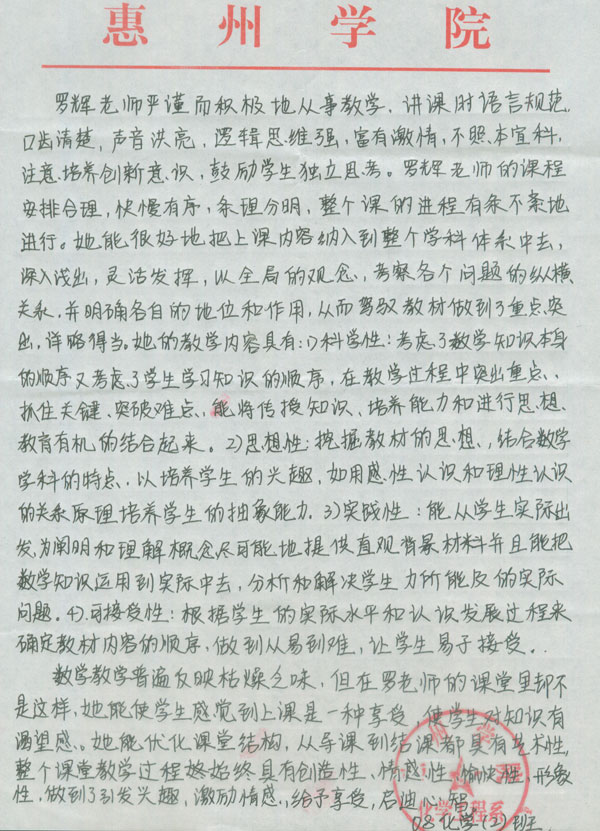 惠州学院
罗辉老师严谨而积极地从事教学，讲课时语言规范，
口齿清楚，声音洪亮，逻辑思维强，富有激情，不照本宣科，
注意培养创新意识，鼓励学生独立思考。罗辉老师的课程
安排合理，快慢有序，条理分明，整个课的进程有条不紊地
进行。她能很好地把上课内容纳入到整个学科体系中去，
深入浅出，灵活发挥，以全局的观念，考察各个问题的纵横
关系，并明确各自的地位和作用，从而驾驭教材做到了重点突
出，详略得当。她的教学内容具有：1）科学性：考虑了数学知识本身
的顺序又考虑了学生学习知识的顺序，在教学过程中突出重点、
抓住关键、突破难点，能将传授知识、培养能力和进行思想
教育有机的结合起来。2）思想性：挖掘教材的思想，结合数学
学科的特点，以培养学生的兴趣，如用感性认识和理性认识
的关系原理培养学生的抽象能力。3）实践性：能从学生实际出
发，为阐明和理解概念尽可能地提供直观背景材料并且能把
数学知识运用到实际中去，分析和解决学生力所能及的实际
问题。4）可接受性：根据学生的实际水平和认识发展过程来
确定教材内容的顺序，做到从易到难，让学生易于接受。
数学教学普遍反映枯燥乏味，但在罗老师的课堂里却不
是这样，她能使学生感觉到上课是一种享受，使学生对知识有
渴望感。她能优化课堂结构，从导课到结课都具有艺术性，
整个课堂教学过程始终具有创造性、情感性、愉快性、形象
性，做到了引发兴趣，激励情感，给予享受，启迪心智。
化学工程系
08化学（2）班